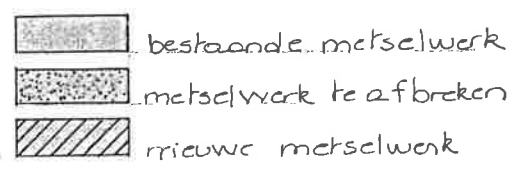 bestaande metselwerk
metselwerk te afbreken
nieuwe metselwerk